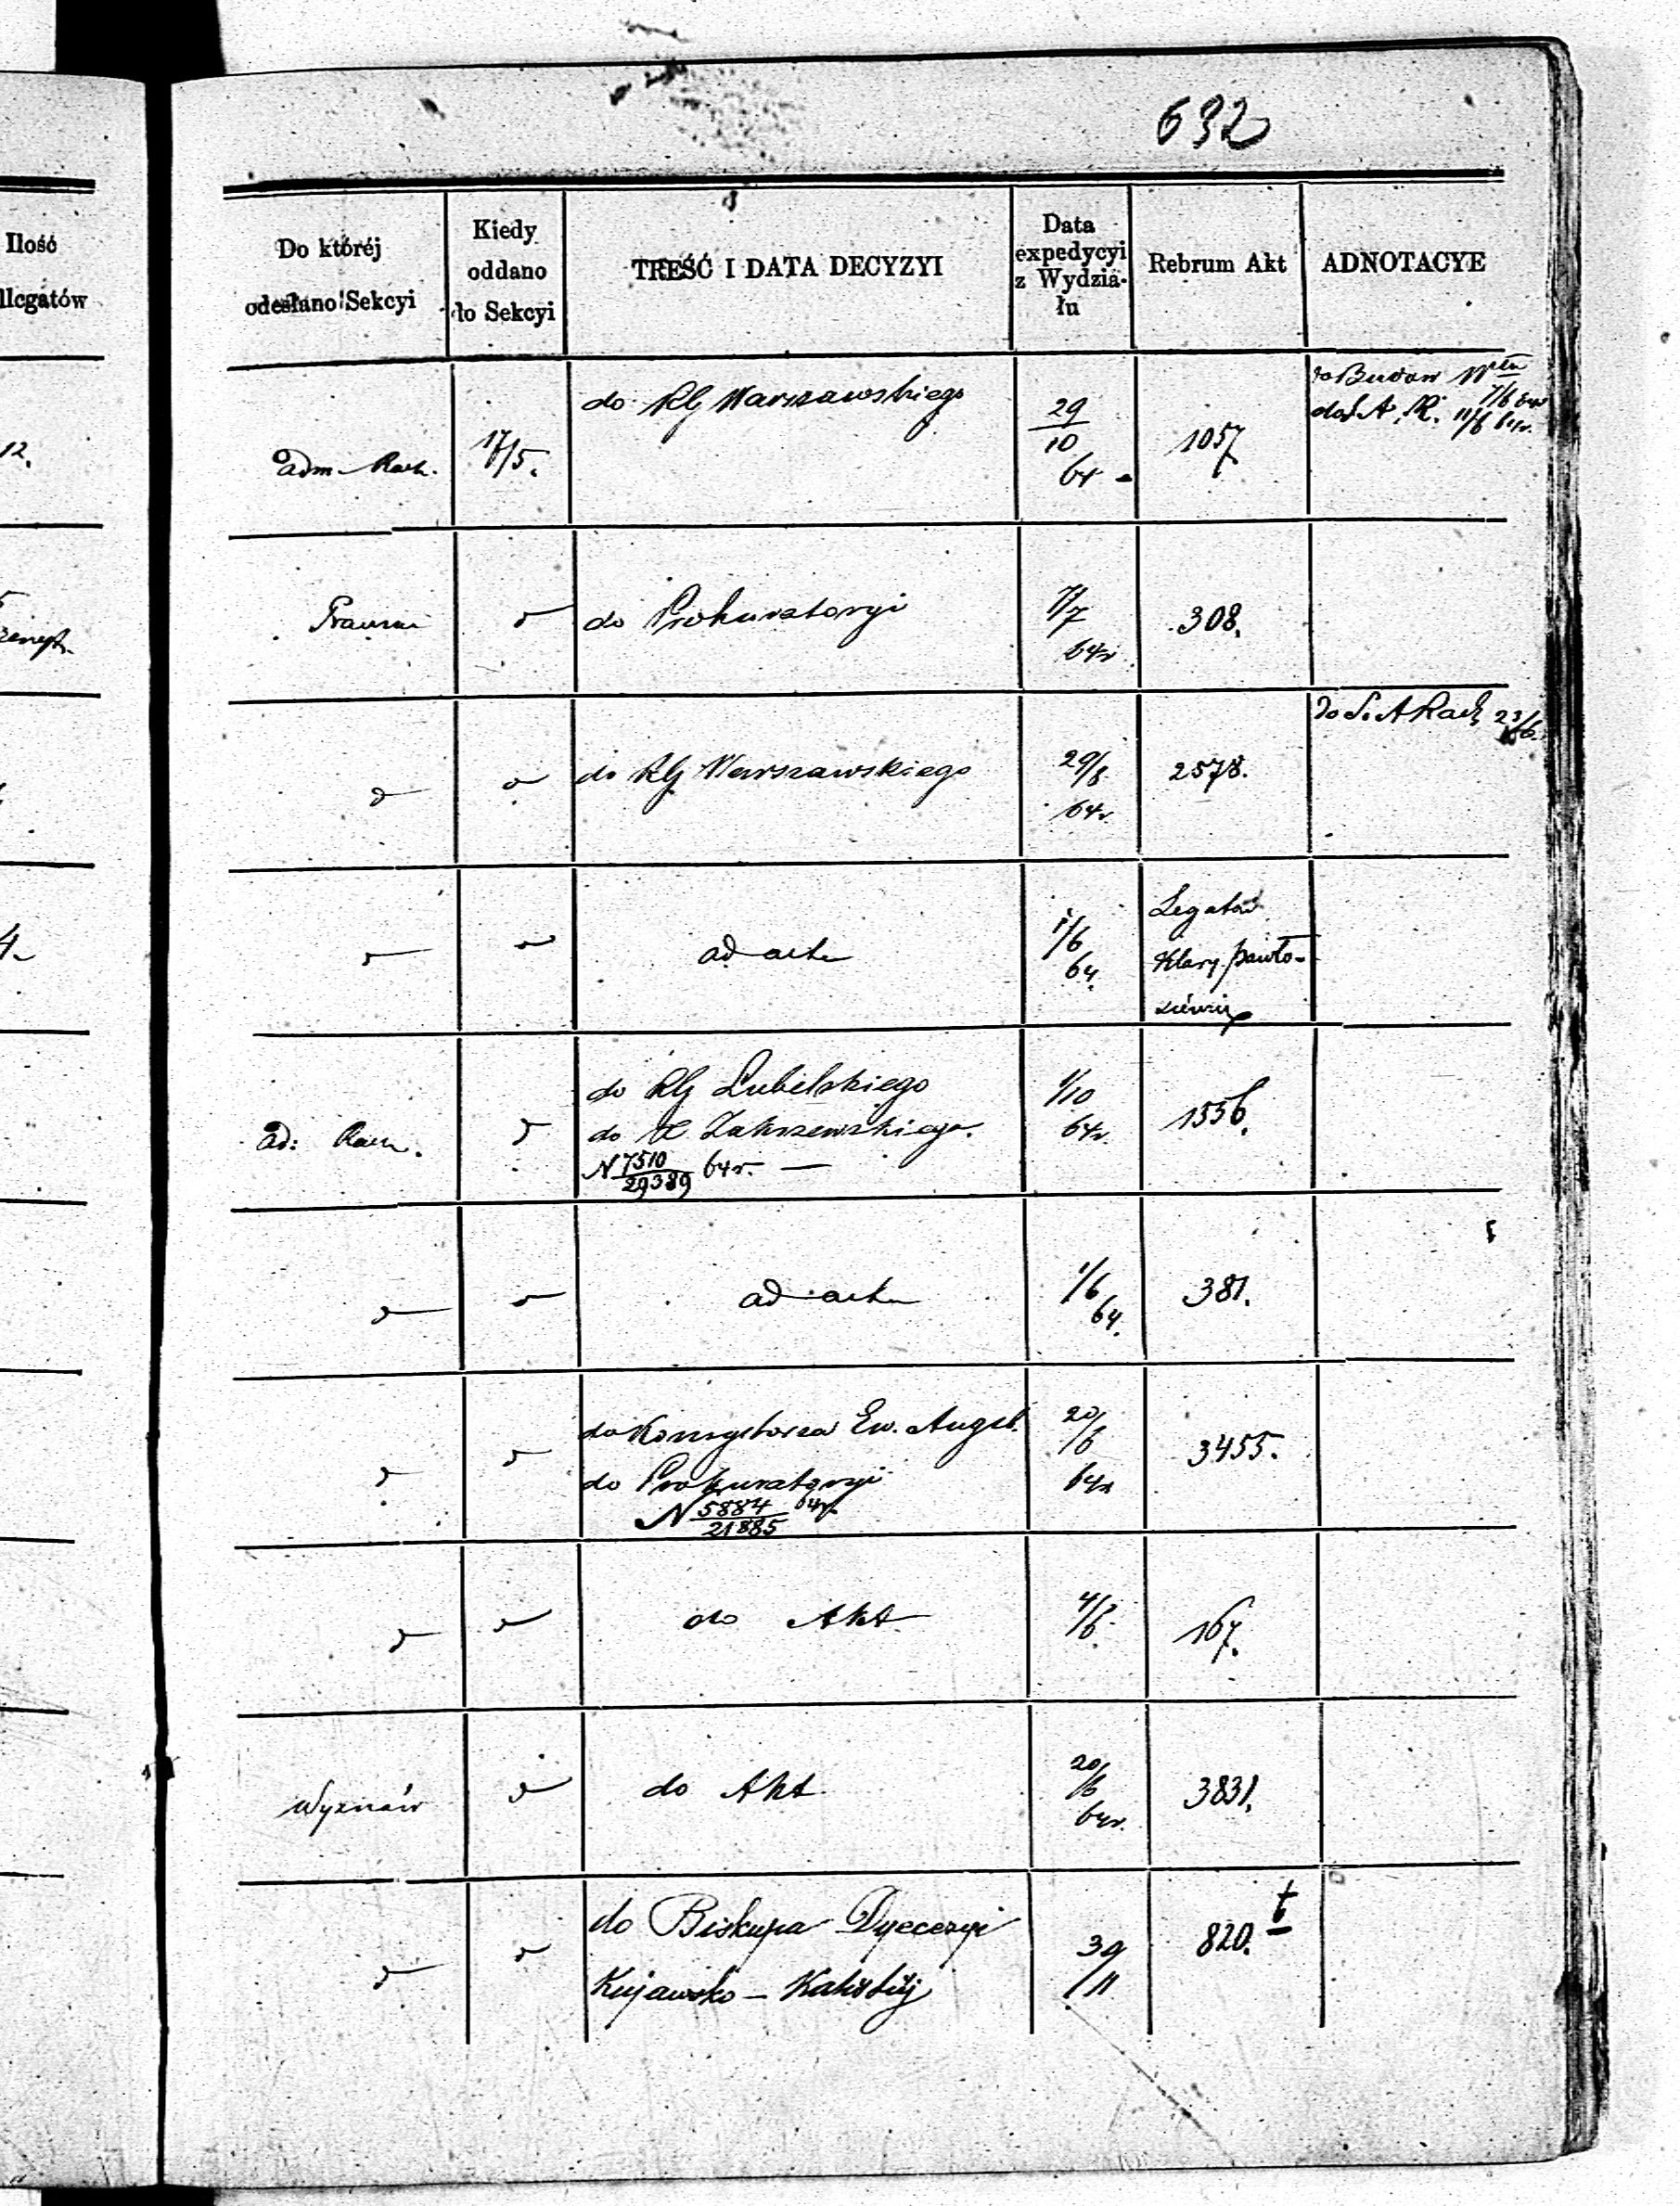 632
Ilość
llegatów
Do któréj
odesłano Sekcyi
Kiedy
oddano
do Sekcyi
TREŚĆ I DATA DECYZYI
Data
expedycyi
z Wydzia-
łu
Rebrum Akt
ADNOTACYE
12.
adm Rach.
17/5.
do RG Warszawskiego
29
10
64
1057
do Budow
7/6 64r
do S. A. R. 11/6 64r.
Prawna
do Prokuratoryi
7/7
64r
308.
do RG Warszawskiego
29/8
64r.
2578.
do S. A Rach 23/6.
4
ad acta
1/6
64.
Legatów
Klary Pawło-
ad: Rach.
do RG Lubelskiego
do Zakrzewskiego.
N 7510 64r. —
29389
1/10
64r.
1336.
ad acta
1/6
64.
381.
do Konsystorza Ew. Augsb.
do Prokuratoryi
N 5884 64r
21885
20/6
64r
3455.
do Akt
4/6.
167.
Wyznań
do Akt
20/6
64r.
3831.
do Biskupa Dyecezyi
Kujawsko – Kaliskiéj
30
/11
820.